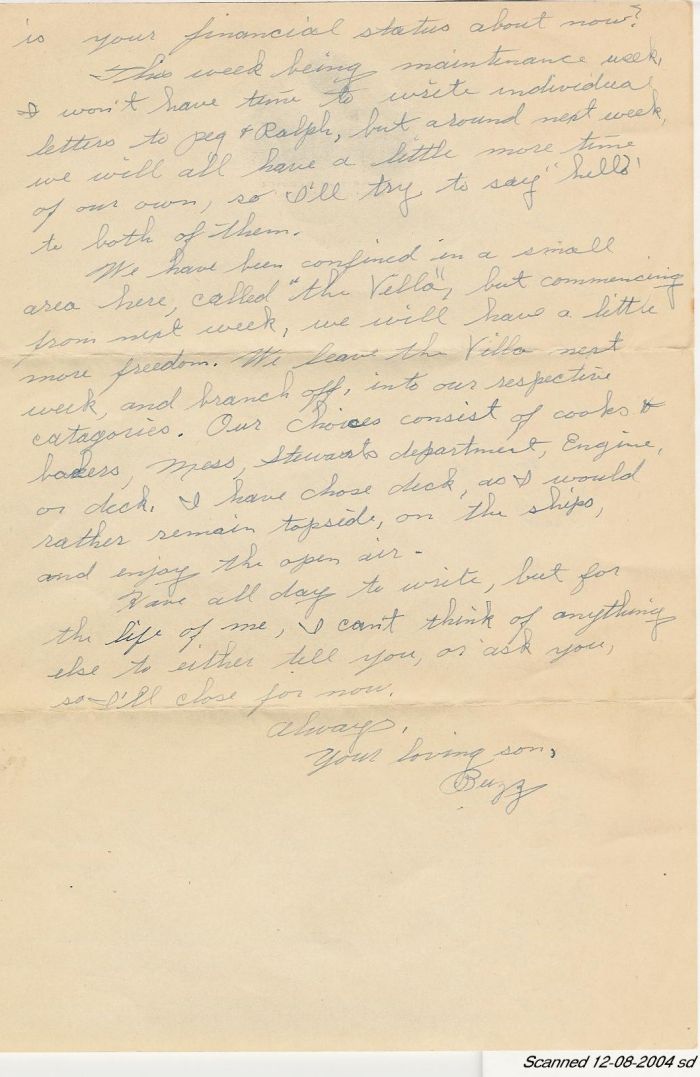 is your financial status about now?
This week being maintenance week,
I won't have time to write individual
letters to Peg & Ralph, but around next week,
we will all have a little more time
of our own, so I'll try to say "hello"
to both of them.
We have been confined in a small
area here, called "the Villa", but commencing
from next week, we will have a little
more freedom. We leave the Villa next
week, and branch off, into our respective
catagories. Our choices consist of cooks &
bakers, Mess, Stewards department, Engine,
or deck. I have chose deck, as I would
rather remain topside, on the ships,
and enjoy the open air.
Have all day to write, but for
the life of me, I can't think of anything
else to either tell you, or ask you,
so I'll close for now.
Always,
Your loving son,
Buzz
Scanned 12-08-2004 sd